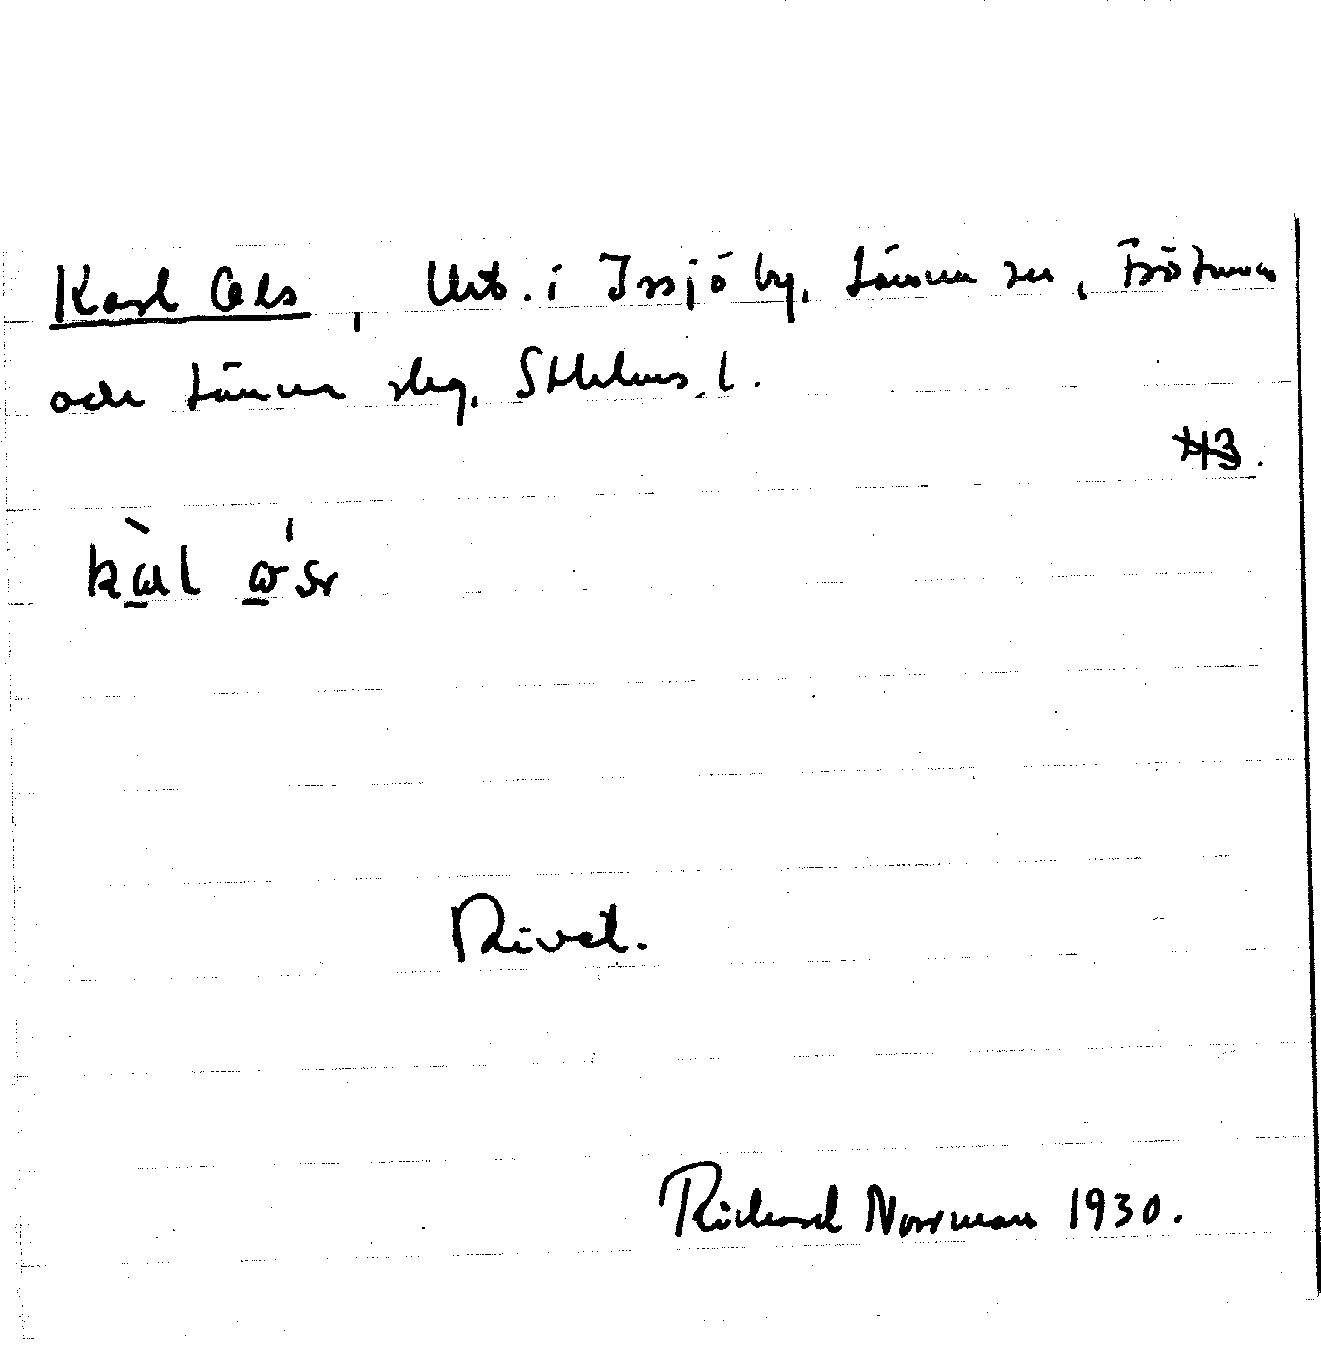 Karl Ols, Urb. i Issjö by, Länna sn, Frötuna
och Länna slg, Sthlms l.
Rivet.
Richard Norrman 1930.